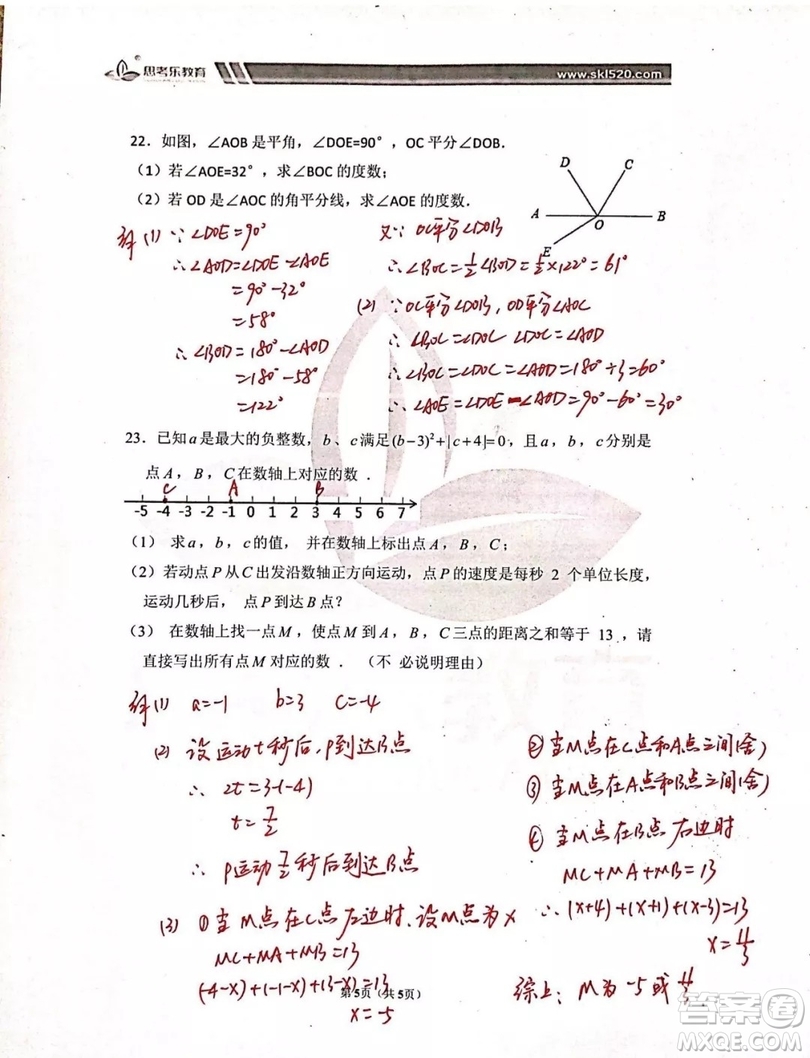 思考乐教育
www.skl520.com
22. 如图，∠AOB 是平角，∠DOE=90°，OC 平分∠DOB.
（1）若∠AOE=32°，求∠BOC 的度数；
（2）若 OD 是∠AOC 的角平分线，求∠AOE 的度数.
D
C
A
O
B
E
解 (1) ∵ ∠DOE=90°
∴ ∠AOD=∠DOE-∠AOE
=90°-32°
=58°
∴ ∠BOD=180°-∠AOD
=180°-58°
=122°
又∵ OC平分∠DOB
∴ ∠BOC=1/2∠BOD=1/2×122°=61°
(2) ∵ OC平分∠DOB, OD平分∠AOC
∴ ∠BOC=∠DOC ∠DOC=∠AOD
∴ ∠BOC=∠DOC=∠AOD=180°÷3=60°
∴ ∠AOE=∠DOE-∠AOD=90°-60°=30°
23. 已知a是最大的负整数，b、c满足(b-3)²+|c+4|=0，且a，b，c分别是
点A，B，C在数轴上对应的数.
C A B
-5 -4 -3 -2 -1 0 1 2 3 4 5 6 7
（1） 求a，b，c的值， 并在数轴上标出点A，B，C；
（2）若动点P从C出发沿数轴正方向运动，点P的速度是每秒 2 个单位长度，
运动几秒后， 点P到达B点？
（3） 在数轴上找一点M，使点M到A，B，C三点的距离之和等于 13 ，请
直接写出所有点M对应的数. （不 必说明理由）
解(1) a=-1 b=3 c=-4
(2) 设运动t秒后, P到达B点
∴ 2t=3-(-4)
t=7/2
∴ P运动7/2秒后到达B点
(3) ①当M点在C点左边时, 设M点为x
MC+MA+MB=13
(-4-x)+(-1-x)+(3-x)=13
x=-5
②当M点在C点和A点之间(舍)
③当M点在A点和B点之间(舍)
④当M点在B点右边时
MC+MA+MB=13
∴ (x+4)+(x+1)+(x-3)=13
x=11/3
综上: M为-5或11/3
第5页（共5页）
答案圈
MXQE.COM